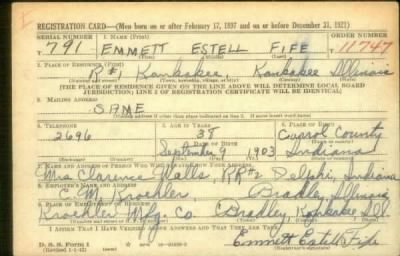 REGISTRATION CARD—(Men born on or after February 17, 1897 and on or before December 31, 1921)
SERIAL NUMBER 1. NAME (Print) ORDER NUMBER
T 791 EMMETT ESTELL FIFE 11747
2. PLACE OF RESIDENCE (Print)
R#1, Kankakee Kankakee Illinois
(THE PLACE OF RESIDENCE GIVEN ON THE LINE ABOVE WILL DETERMINE LOCAL BOARD
JURISDICTION; LINE 2 OF REGISTRATION CERTIFICATE WILL BE IDENTICAL)
3. MAILING ADDRESS
SAME
4. TELEPHONE 5. AGE IN YEARS 6. PLACE OF BIRTH
2696 38 Carrol County
DATE OF BIRTH
September 9 1903 Indiana
7. NAME AND ADDRESS OF PERSON WHO WILL ALWAYS KNOW YOUR ADDRESS
Mrs Clarence Halls RR#2 Delphi, Indiana
8. EMPLOYER'S NAME AND ADDRESS
C. M. Kroehler, Bradley, Illinois
9. PLACE OF EMPLOYMENT OR BUSINESS
Kroehler Mfg. Co Bradley, Kankakee Ill.
I AFFIRM THAT I HAVE VERIFIED ABOVE ANSWERS AND THAT THEY ARE TRUE.
D. S. S. Form 1 Emmett Estell Fife